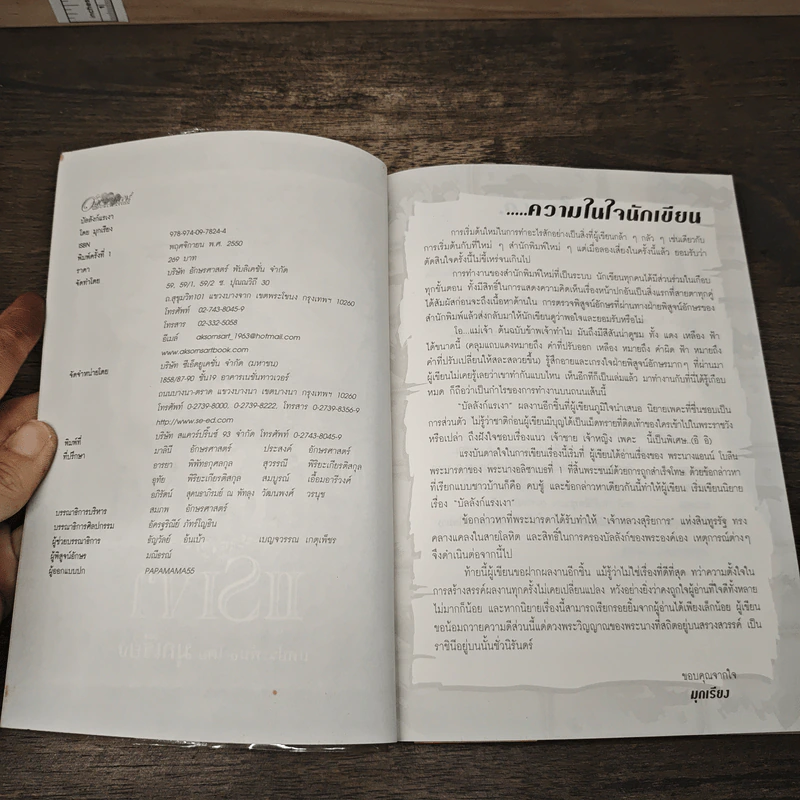 บัลลังก์แรเงา
โดย มุกเรียง
ISBN 978-974-09-7824-4
พิมพ์ครั้งที่ 1 พฤศจิกายน พ.ศ. 2550
ราคา 269 บาท
จัดทำโดย บริษัท อักษรศาสตร์ พับลิเคชั่น จำกัด
59, 59/1, 59/2 ซ. ปุณณวิถี 30
ถ.สุขุมวิท101 แขวงบางจาก เขตพระโขนง กรุงเทพฯ 10260
โทรศัพท์ 02-743-8045-9
โทรสาร 02-332-5058
อีเมล์ aksornsart_1963@hotmail.com
www.aksornsartbook.com
จัดจำหน่ายโดย บริษัท ซีเอ็ดยูเคชั่น จำกัด (มหาชน)
1858/87-90 ชั้น19 อาคารเนชั่นทาวเวอร์
ถนนบางนา-ตราด แขวงบางนา เขตบางนา กรุงเทพฯ 10260
โทรศัพท์ 0-2739-8000, 0-2739-8222, โทรสาร 0-2739-8356-9
http://www.se-ed.com
พิมพ์ที่ บริษัท สแควร์ปริ๊นซ์ 93 จำกัด โทรศัพท์ 0-2743-8045-9
ที่ปรึกษา มาลินี อักษรศาสตร์ ประสงค์ อักษรศาสตร์
อารยา พิพัทธกุศลกุล สุวรรณี พิริยะเกียรติสกุล
อุทัย พิริยะเกียรติสกุล สมบูรณ์ เอื้อมอารีวงค์
อภิรัตน์ สุคนธาภิรมย์ ณ พัทลุง วัฒนพงศ์ วรนุช
บรรณาธิการบริหาร สมภพ อักษรศาสตร์
บรรณาธิการศิลปกรรม อัครฐริณีย์ ภัทร์โญชิน
ผู้ช่วยบรรณาธิการ ธัญวัลย์ อ้นเบ้า เบญจวรรณ เกตุเพ็ชร
ผู้พิสูจน์อักษร มณีธรณ์
ผู้ออกแบบปก PAPAMAMA55
.....ความในใจนักเขียน
การเริ่มต้นใหม่ในการทำอะไรสักอย่างเป็นสิ่งที่ผู้เขียนกล้า ๆ กลัว ๆ เช่นเดียวกับ
การเริ่มต้นกับที่ใหม่ ๆ สำนักพิมพ์ใหม่ ๆ แต่เมื่อลองเสี่ยงในครั้งนี้แล้ว ยอมรับว่า
ตัดสินใจครั้งนี้ไม่ขี้เหร่จนเกินไป
การทำงานของสำนักพิมพ์ใหม่ที่เป็นระบบ นักเขียนทุกคนได้มีส่วนร่วมในเกือบ
ทุกขั้นตอน ทั้งมีสิทธิ์ในการแสดงความคิดเห็นเรื่องหน้าปกอันเป็นสิ่งแรกที่สายตาทุกคู่
ได้สัมผัสก่อนจะถึงเนื้อหาด้านใน การตรวจพิสูจน์อักษรที่ผ่านทางฝ่ายพิสูจน์อักษรของ
สำนักพิมพ์แล้วส่งกลับมาให้นักเขียนดูว่าพอใจและยอมรับหรือไม่
โอ...แม่เจ้า ต้นฉบับข้าพเจ้าทำไม มันถึงมีสีสันน่าดูชม ทั้ง แดง เหลือง ฟ้า
ได้ขนาดนี้ (คลุมแถบแดงหมายถึง คำที่ปรับออก เหลือง หมายถึง คำผิด ฟ้า หมายถึง
คำที่ปรับเปลี่ยนให้สละสลวยขึ้น) รู้สึกอายและเกรงใจฝ่ายพิสูจน์อักษรมากๆ ที่ผ่านมา
ผู้เขียนไม่เคยรู้เลยว่าเขาทำกันแบบไหน เห็นอีกทีก็เป็นเล่มแล้ว มาทำงานกับที่นี่ได้รู้เกือบ
หมด ก็ถือว่าเป็นกำไรของการทำงานบนถนนเส้นนี้
"บัลลังก์แรเงา" ผลงานอีกชิ้นที่ผู้เขียนภูมิใจนำเสนอ นิยายเพคะที่ชื่นชอบเป็น
การส่วนตัว ไม่รู้ว่าชาติก่อนผู้เขียนมีบุญได้เป็นเม็ดทรายที่ติดเท้าของใครเข้าไปในพระราชวัง
หรือเปล่า ถึงฝังใจชอบเรื่องแนว เจ้าชาย เจ้าหญิง เพคะ นี้เป็นพิเศษ..(อิ อิ)
แรงบันดาลใจในการเขียนเรื่องนี้เริ่มที่ ผู้เขียนได้อ่านเรื่องของ พระนางแอนน์ โบลีน
พระมารดาของ พระนางอลิซาเบธที่ 1 ที่สิ้นพระชนม์ด้วยการถูกสำเร็จโทษ ด้วยข้อกล่าวหา
ที่เรียกแบบชาวบ้านก็คือ คบชู้ และข้อกล่าวหาเดียวกันนี้ทำให้ผู้เขียน เริ่มเขียนนิยาย
เรื่อง "บัลลังก์แรเงา"
ข้อกล่าวหาที่พระมารดาได้รับทำให้ "เจ้าหลวงสุริยการ" แห่งสินทูรรัฐ ทรง
คลางแคลงในสายโลหิต และสิทธิ์ในการครองบัลลังก์ของพระองค์เอง เหตุการณ์ต่างๆ
จึงดำเนินต่อจากนี้ไป
ท้ายนี้ผู้เขียนขอฝากผลงานอีกชิ้น แม้รู้ว่าไม่ใช่เรื่องที่ดีที่สุด ทว่าความตั้งใจใน
การสร้างสรรค์ผลงานทุกครั้งไม่เคยเปลี่ยนแปลง หวังอย่างยิ่งว่าคงถูกใจผู้อ่านที่ใจดีทั้งหลาย
ไม่มากก็น้อย และหากนิยายเรื่องนี้สามารถเรียกรอยยิ้มจากผู้อ่านได้เพียงเล็กน้อย ผู้เขียน
ขอน้อมถวายความดีส่วนนี้แด่ดวงพระวิญญาณของพระนางที่สถิตอยู่บนสรวงสวรรค์ เป็น
ราชินีอยู่บนนั้นชั่วนิรันดร์
ขอบคุณจากใจ
มุกเรียง